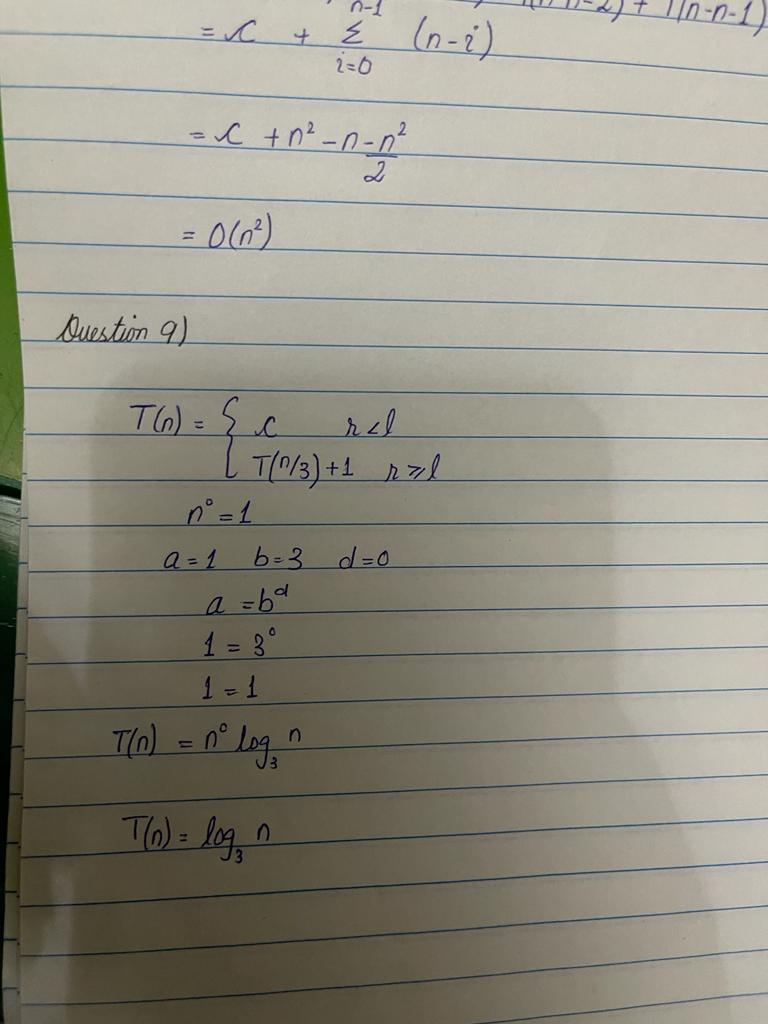 n-1 (n-n-2) + T(n-n-1)
= c + Σ (n-i)
i=0
= c + n² - n - n²
2
= O(n²)
Question 9)
T(n) = { c n<1
T(n/3)+1 n⩾1
n⁰ = 1
a=1 b=3 d=0
a = bᵈ
1 = 3⁰
1 = 1
T(n) = n⁰ log₃ n
T(n) = log₃ n